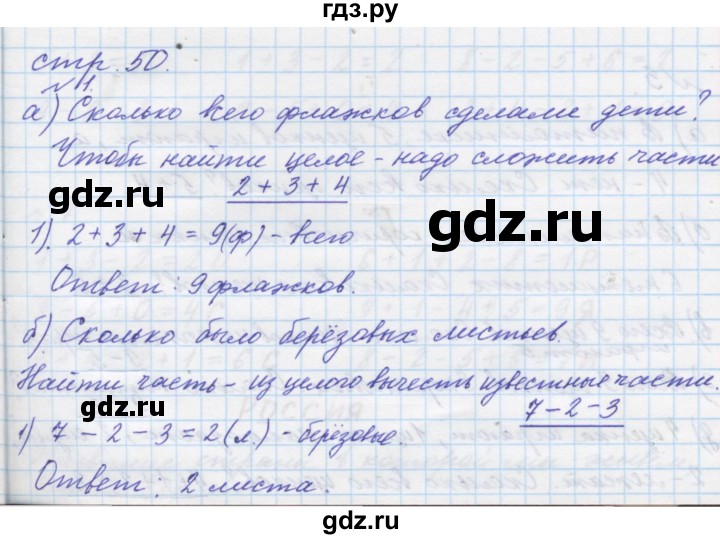 гдз.ру
стр. 50.
№1.
а) Сколько всего флажков сделали дети?
Чтобы найти целое - надо сложить части
2 + 3 + 4
gdz.ru
gdz.ru
1). 2 + 3 + 4 = 9(ф) - всего
Ответ: 9 флажков.
б) Сколько было берёзовых листьев.
Найти часть - из целого вычесть известные части.
7 - 2 - 3
1) 7 - 2 - 3 = 2(л.) - берёзовые.
gdz.ru
gdz.ru
Ответ: 2 листа.
gdz.ru